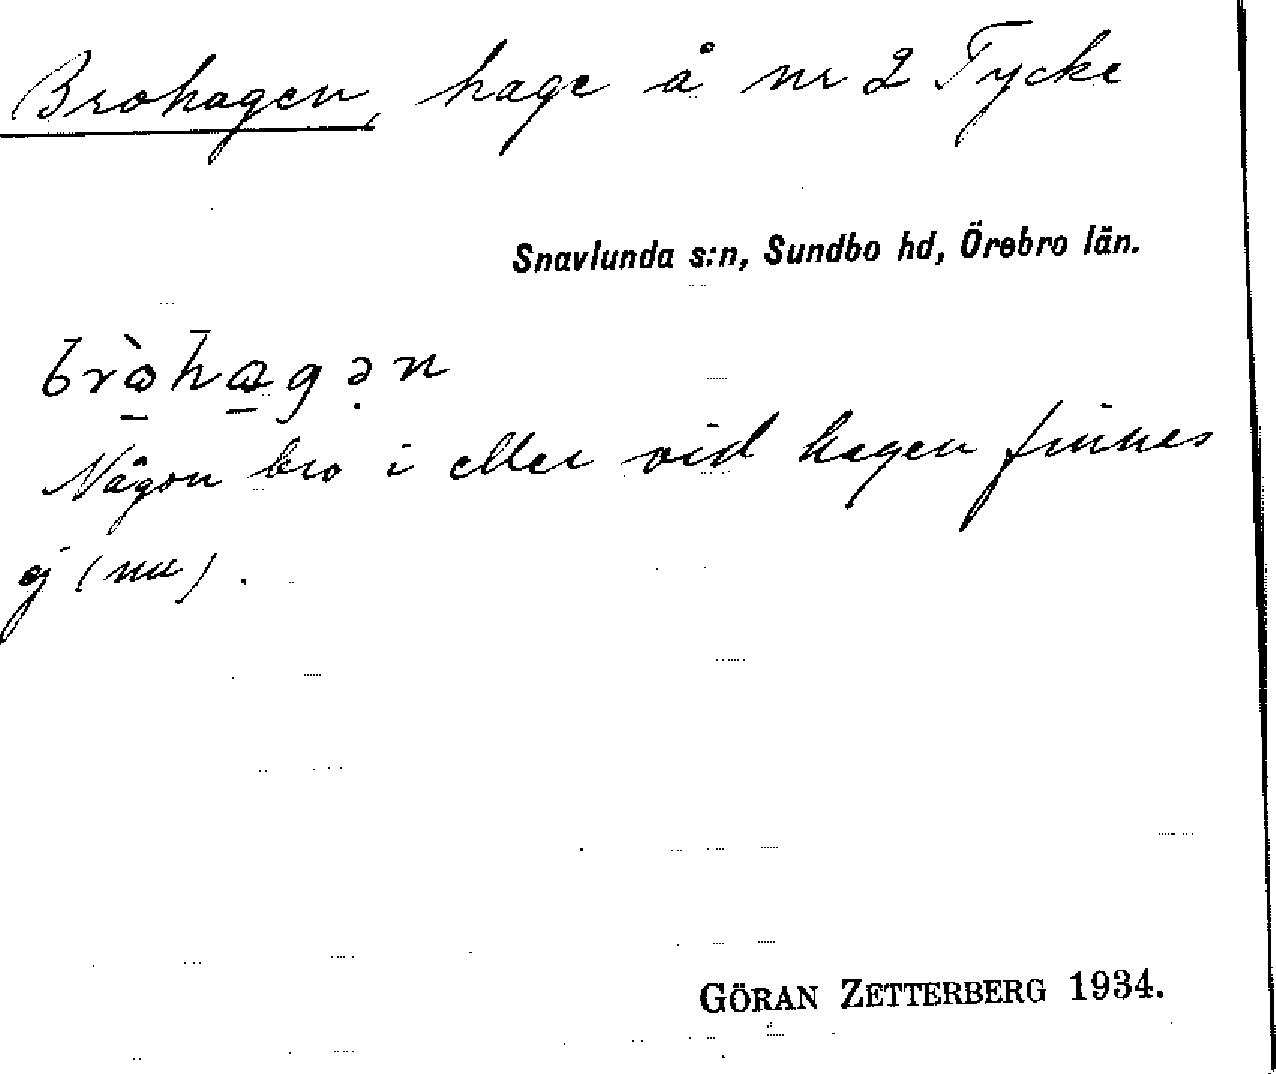 Brohagen, hage å nr 2 Tycke
Snavlunda s:n, Sundbo hd, Örebro län.
Någon bro i eller vid hagen finnes
ej (nu).
GÖRAN ZETTERBERG 1934.